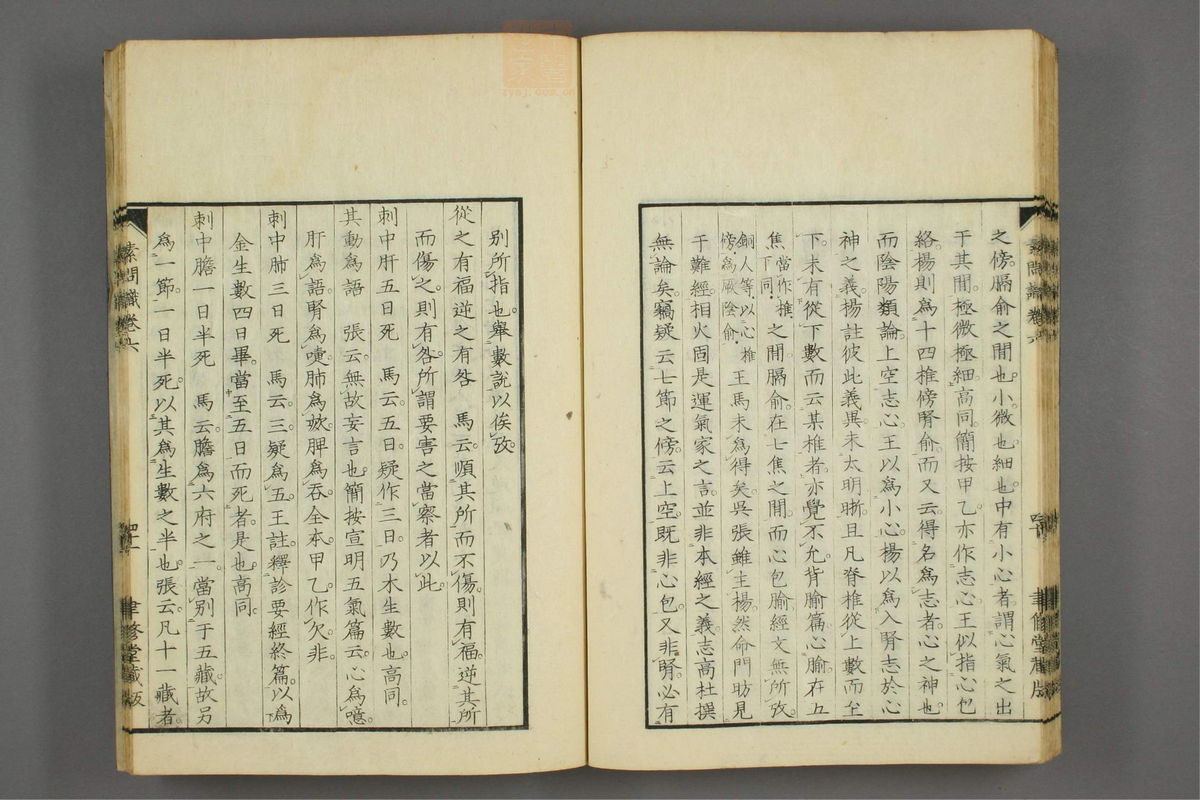 之傍。膈俞之間也。小。微也。細也。中有小心者。謂心氣之出
于其間。極微極細。高同。簡按甲乙。亦作志心。王似指心包
絡。楊則為十四椎傍腎俞。而又云。得名為志者。心之神也。
而陰陽類論。上空志心。王以為小心。楊以為入腎志於心
神之義。楊註彼此義異。未太明晰。且凡脊椎從上數而至
下。未有從下數而云某椎者。亦覺不允。背腧篇。心腧在五
焦當作椎下同之間。膈俞在七焦之間。而心包腧。經文無所攷
銅人等。以心椎傍為厥陰俞王馬未為得矣。吳張雖主楊。然命門昉見
于難經。相火固是運氣家之言。並非本經之義。志高杜撰
無論矣。竊疑云七節之傍。云上空。既非心包。又非腎。必有
素問識卷六
聿修堂藏版
別所指也。舉數說以俟攷
從之有福逆之有咎 馬云。順其所而不傷。則有福。逆其所
而傷之。則有咎。所謂要害之當察者以此。
刺中肝五日死 馬云。五日。疑作三日。乃木生數也。高同。
其動為語 張云。無故妄言也。簡按宣明五氣篇云。心為噫。
肝為語。腎為嚏。肺為欬。脾為吞。全本甲乙。作欠。非。
刺中肺三日死 馬云。三疑為五。王註釋診要經終篇。以為
金生數四日畢。當至五日而死者。是也。高同。
刺中膽一日半死 馬云。膽為六府之一。當別于五藏。故另
為一節。一日半死。以其為生數之半也。張云。凡十一藏者。
素問識卷六
四十一
聿修堂藏版